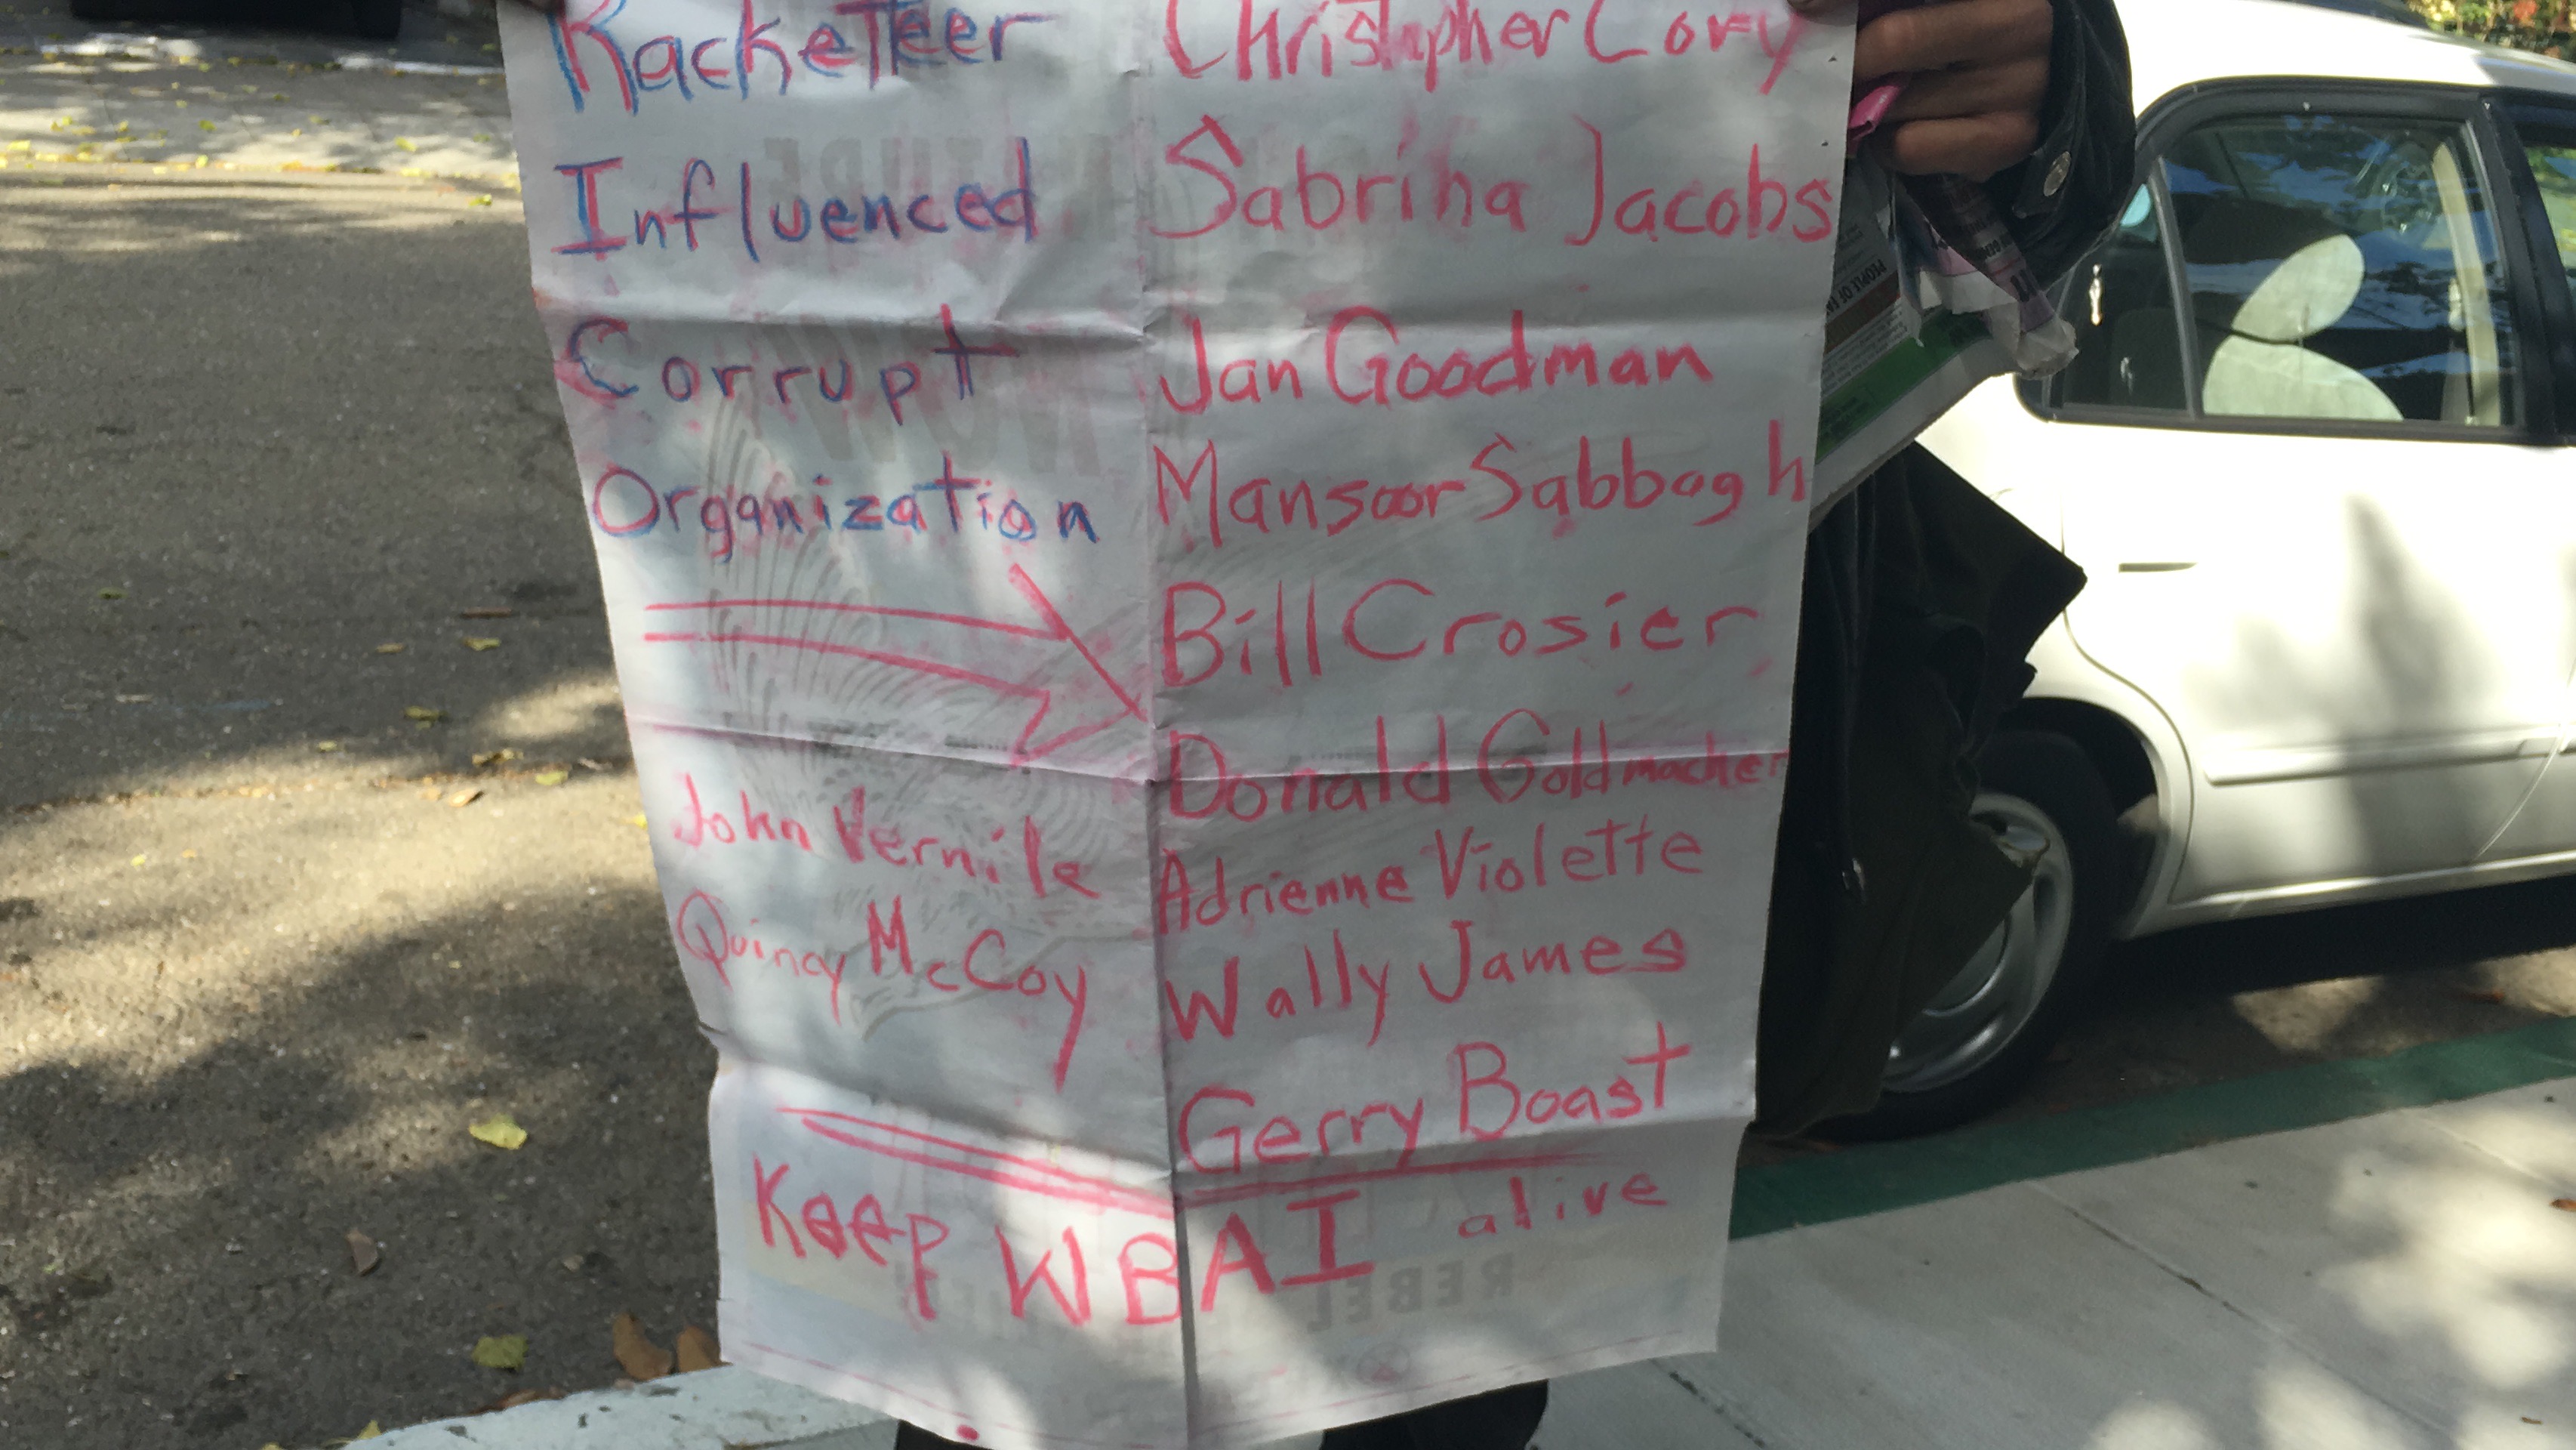 Racketeer
Influenced
Corrupt
Organization
John Vernile
Quincy McCoy
Christopher Cory
Sabrina Jacobs
Jan Goodman
Mansoor Sabbagh
Bill Crosier
Donald Goldmacher
Adrienne Violette
Wally James
Gerry Boast
Keep WBAI alive
REBEL
PEOPLE OF